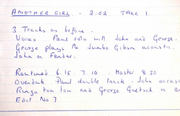 ANOTHER GIRL - 2.02 TAKE 1.
3 Tracks as before.
Vocals Paul solo with John and George.
George plays the Jumbo Gibson acoustic.
John on Fender.
Remixed 6.15 7.10 Master 8.30
Overdub Paul double track. John
Ringo tom tom and George Gretsch
Edit No 7